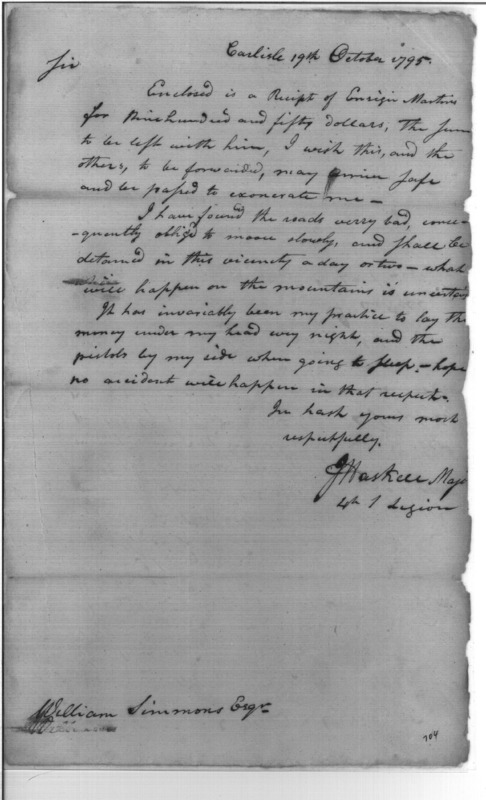 Carlisle 19th October 1795.
Sir
Enclosed is a Reicpt of Ensign Martins
for Ninehundred and fifty dollars, the sum
to be left with him, I wish this, and the
others, to be forwarded, may arrive safe
and be passed to exonerate me —
I have found the roads verry bad, conce-
-quently oblig'd to moove slowly, and shall be
detained in this vicinety a day or two — what
will happen on the mountains is uncertain
It has invariably been my practice to lay the
money under my head evry night, and the
pistols by my side when going to sleep. — hope
no accident will happen in that respect.
In hast yours most
respectfully.
J Haskell Maj
4th S Legion
William Simmons Esqr
704